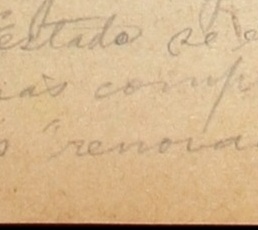 estado se e
as comp
s "renova